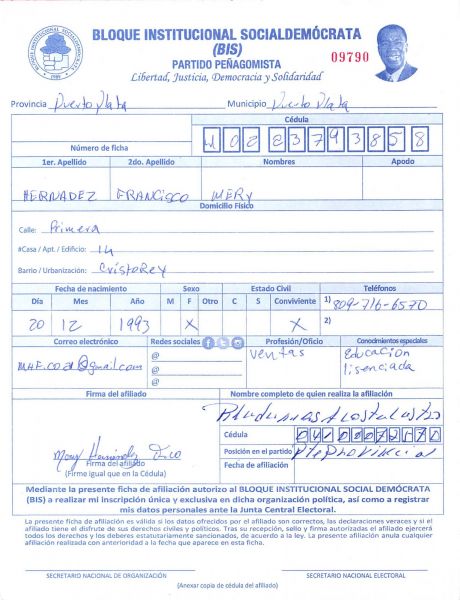 BLOQUE INSTITUCIONAL SOCIALDEMÓCRATA
(BIS)
PARTIDO PEÑAGOMISTA
Libertad, Justicia, Democracia y Solidaridad
09790
BLOQUE INSTITUCIONAL SOCIALDEMOCRATA
Provincia Puerto Plata Municipio Puerto Plata
Cédula
Número de ficha 40223793858
1er. Apellido 2do. Apellido Nombres Apodo
HERNADEZ FRANCISCO MERY
Domicilio Físico
Calle: Primera
#Casa / Apt. / Edificio: 14
Barrio / Urbanización: CristoRey
Fecha de nacimiento Sexo Estado Civil Teléfonos
Día Mes Año M F Otro C S Conviviente 1) 809-716-6570
20 12 1993 X X 2)
Correo electrónico Redes sociales Profesión/Oficio Conocimientos especiales
@gmail.com @ ventas Educacion
@ licenciada
@
Firma del afiliado Nombre completo de quien realiza la afiliación
Cédula
Mery Hernández Posición en el partido Pte Provincial
Firma del afiliado Fecha de afiliación
(Firme igual que en la Cédula)
Mediante la presente ficha de afiliación autorizo al BLOQUE INSTITUCIONAL SOCIAL DEMÓCRATA
(BIS) a realizar mi inscripción única y exclusiva en dicha organización política, así como a registrar
mis datos personales ante la Junta Central Electoral.
La presente ficha de afiliación es válida si los datos ofrecidos por el afiliado son correctos, las declaraciones veraces y si el
afiliado tiene el disfrute de sus derechos civiles y políticos. Tras su recepción, sello y firma autorizadas el afiliado ejercerá
todos los derechos y los deberes estatutariamente sancionados, de acuerdo a la ley. La presente afiliación anula cualquier
afiliación realizada con anterioridad a la fecha que aparece en esta ficha.
SECRETARIO NACIONAL DE ORGANIZACIÓN SECRETARIO NACIONAL ELECTORAL
(Anexar copia de cédula del afiliado)